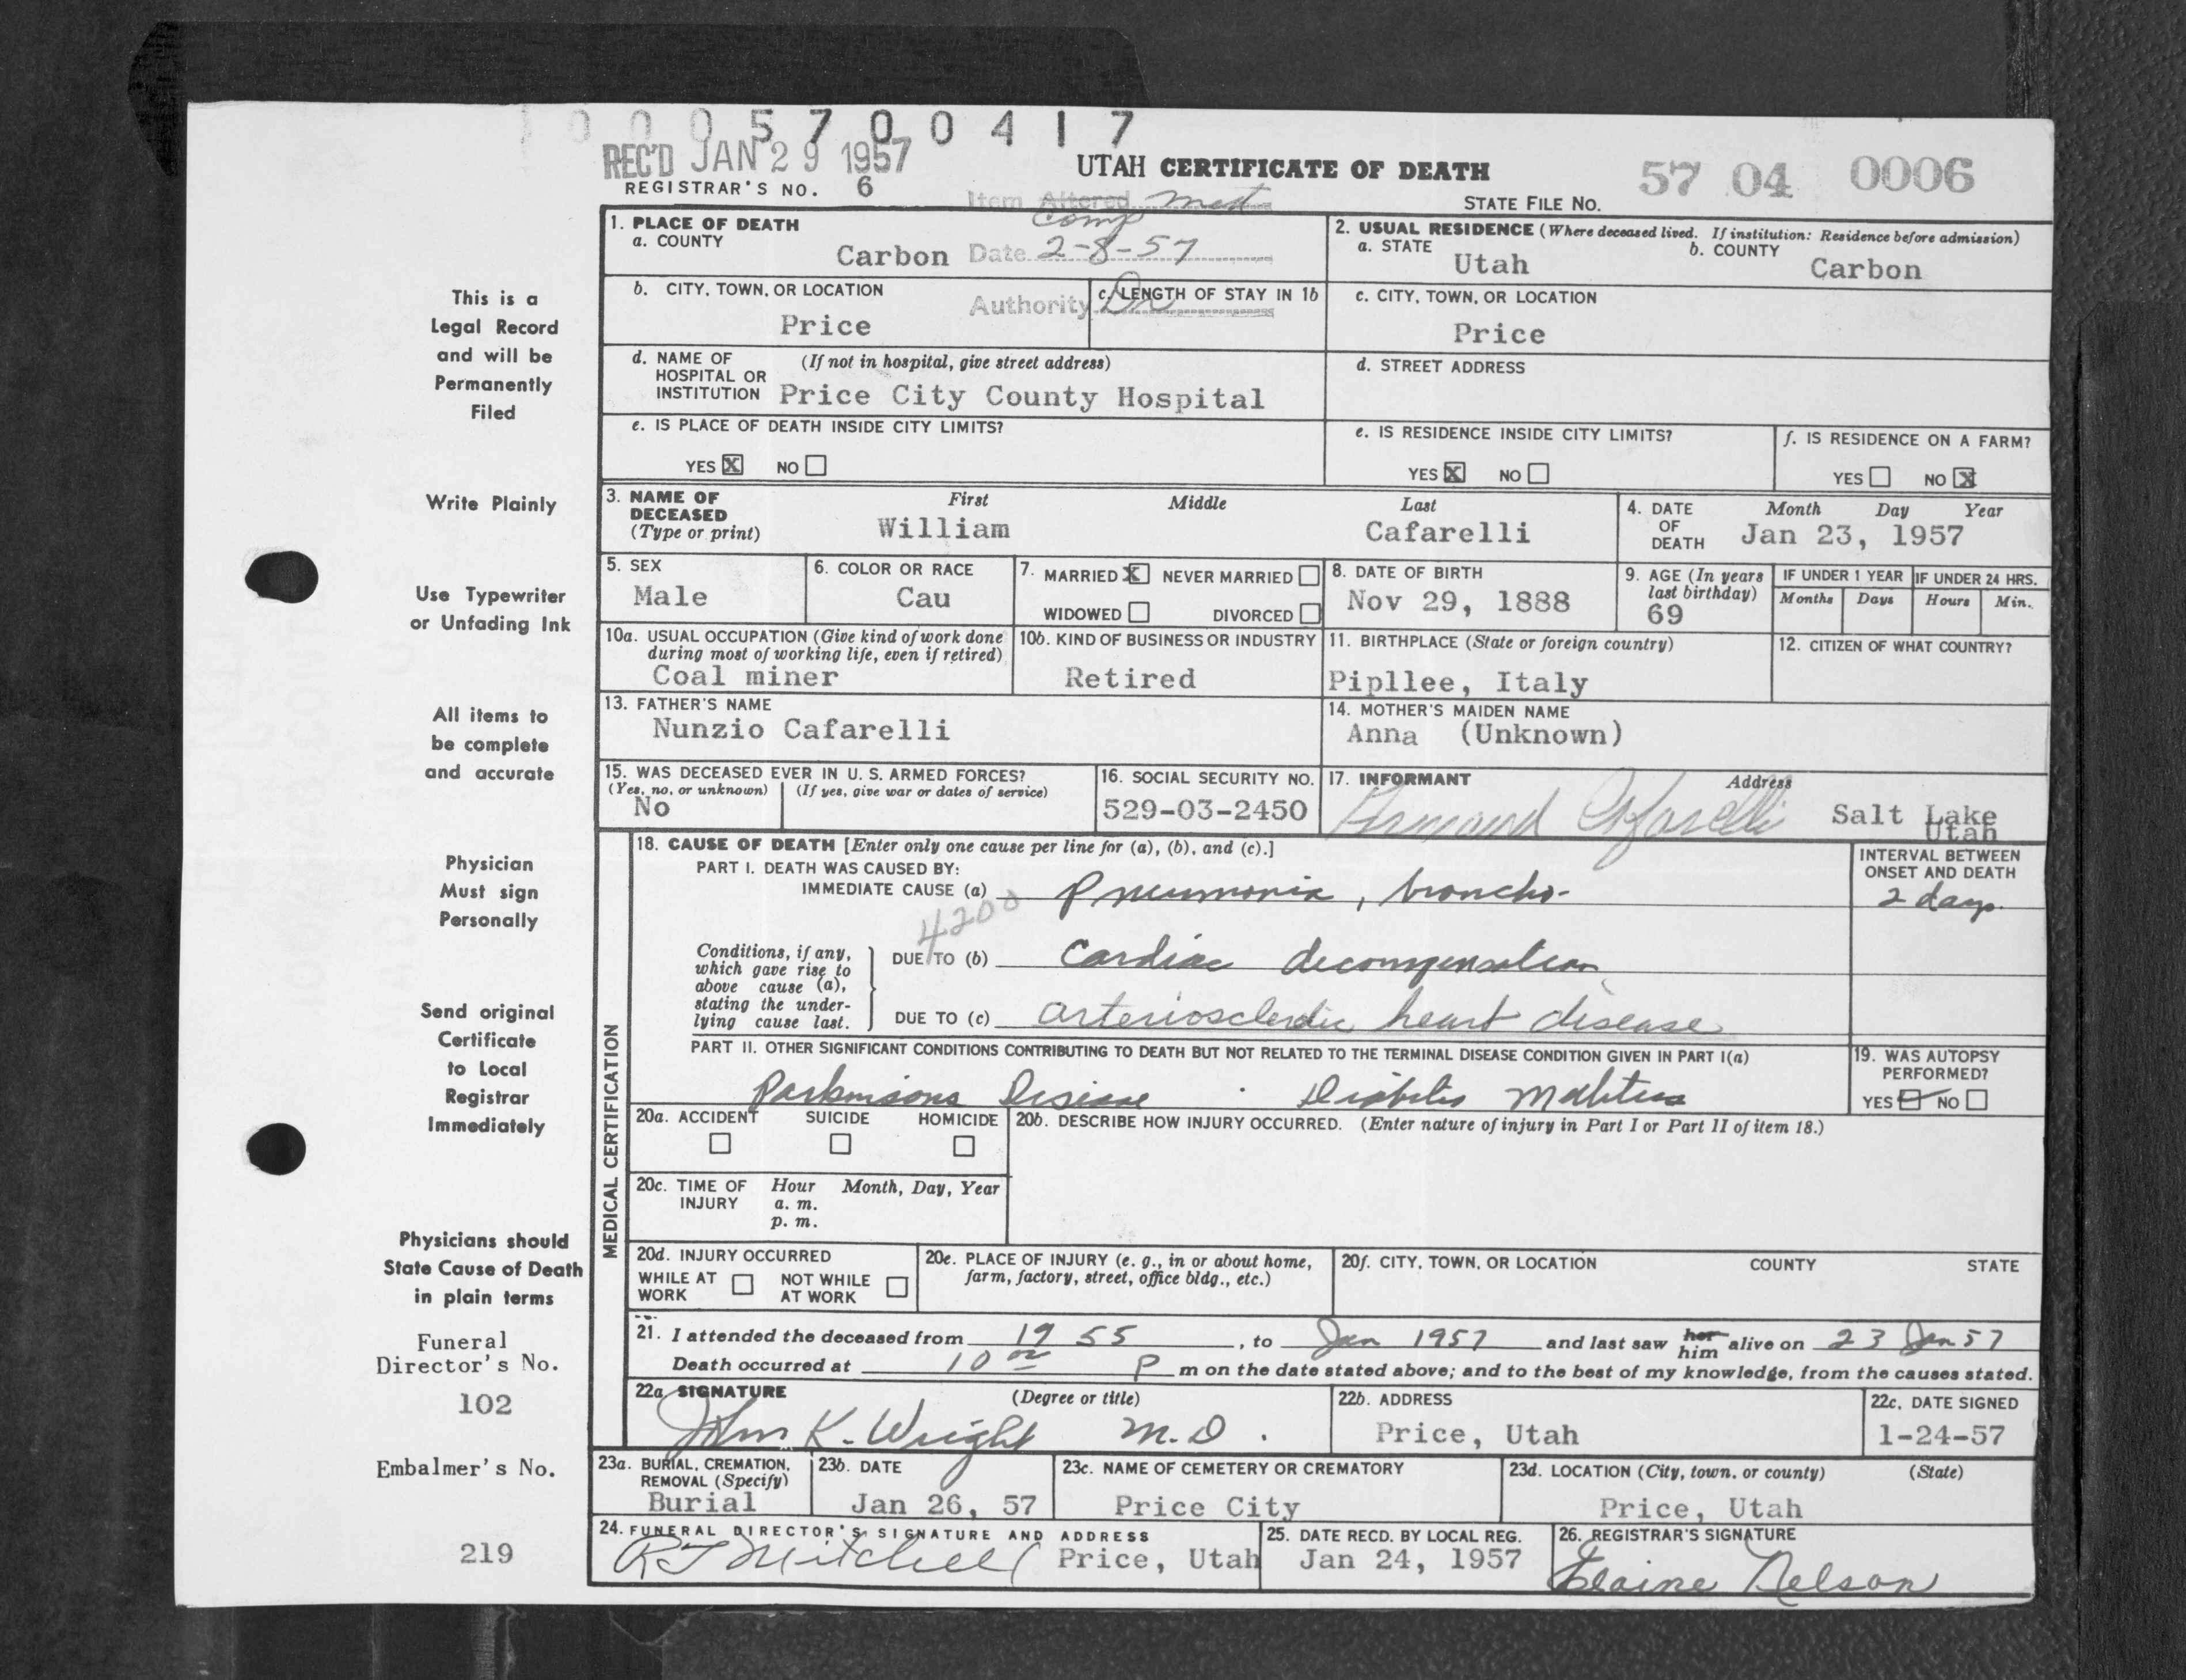 0 0 0 5 7 0 0 4 1 7
REC'D JAN 29 1957
REGISTRAR'S NO. 6
UTAH CERTIFICATE OF DEATH
57 04 0006
STATE FILE NO.
Item Altered Med
Comp
Date 2-8-57
Authority Dr
1. PLACE OF DEATH
a. COUNTY
Carbon
2. USUAL RESIDENCE (Where deceased lived. If institution: Residence before admission)
a. STATE
Utah
b. COUNTY
Carbon
b. CITY, TOWN, OR LOCATION
Price
c. LENGTH OF STAY IN 1b
c. CITY, TOWN, OR LOCATION
Price
d. NAME OF HOSPITAL OR INSTITUTION (If not in hospital, give street address)
Price City County Hospital
d. STREET ADDRESS
e. IS PLACE OF DEATH INSIDE CITY LIMITS?
YES X NO
e. IS RESIDENCE INSIDE CITY LIMITS?
YES X NO
f. IS RESIDENCE ON A FARM?
YES NO X
3. NAME OF DECEASED (Type or print)
First Middle Last
William Cafarelli
4. DATE OF DEATH
Month Day Year
Jan 23, 1957
5. SEX
Male
6. COLOR OR RACE
Cau
7. MARRIED X NEVER MARRIED
WIDOWED DIVORCED
8. DATE OF BIRTH
Nov 29, 1888
9. AGE (In years last birthday)
69
IF UNDER 1 YEAR
Months Days
IF UNDER 24 HRS.
Hours Min.
10a. USUAL OCCUPATION (Give kind of work done during most of working life, even if retired)
Coal miner
10b. KIND OF BUSINESS OR INDUSTRY
Retired
11. BIRTHPLACE (State or foreign country)
Pipllee, Italy
12. CITIZEN OF WHAT COUNTRY?
13. FATHER'S NAME
Nunzio Cafarelli
14. MOTHER'S MAIDEN NAME
Anna (Unknown)
15. WAS DECEASED EVER IN U. S. ARMED FORCES?
(Yes, no, or unknown) (If yes, give war or dates of service)
No
16. SOCIAL SECURITY NO.
529-03-2450
17. INFORMANT Address
Cafarelli Salt Lake
Utah
MEDICAL CERTIFICATION
18. CAUSE OF DEATH [Enter only one cause per line for (a), (b), and (c).]
PART I. DEATH WAS CAUSED BY:
IMMEDIATE CAUSE (a) Pneumonia, broncho-
INTERVAL BETWEEN ONSET AND DEATH
2 days
4200
Conditions, if any, which gave rise to above cause (a), stating the underlying cause last.
DUE TO (b) Cardiac decompensation
DUE TO (c) arteriosclerotic heart disease
PART II. OTHER SIGNIFICANT CONDITIONS CONTRIBUTING TO DEATH BUT NOT RELATED TO THE TERMINAL DISEASE CONDITION GIVEN IN PART I(a)
Parkinsons Disease Diabetes Mellitus
19. WAS AUTOPSY PERFORMED?
YES NO
20a. ACCIDENT SUICIDE HOMICIDE
20b. DESCRIBE HOW INJURY OCCURRED. (Enter nature of injury in Part I or Part II of item 18.)
20c. TIME OF INJURY Hour Month, Day, Year
a. m.
p. m.
20d. INJURY OCCURRED
WHILE AT WORK NOT WHILE AT WORK
20e. PLACE OF INJURY (e. g., in or about home, farm, factory, street, office bldg., etc.)
20f. CITY, TOWN, OR LOCATION COUNTY STATE
21. I attended the deceased from 1955, to Jan 1957 and last saw her him alive on 23 Jan 57
Death occurred at 10 00 P m on the date stated above; and to the best of my knowledge, from the causes stated.
22a. SIGNATURE (Degree or title)
John K. Wright M.D.
22b. ADDRESS
Price, Utah
22c. DATE SIGNED
1-24-57
23a. BURIAL, CREMATION, REMOVAL (Specify)
Burial
23b. DATE
Jan 26, 57
23c. NAME OF CEMETERY OR CREMATORY
Price City
23d. LOCATION (City, town, or county) (State)
Price, Utah
24. FUNERAL DIRECTOR'S SIGNATURE AND ADDRESS
RJ Mitchell Price, Utah
25. DATE RECD. BY LOCAL REG.
Jan 24, 1957
26. REGISTRAR'S SIGNATURE
Elaine Nelson
This is a
Legal Record
and will be
Permanently
Filed
Write Plainly
Use Typewriter
or Unfading Ink
All items to
be complete
and accurate
Physician
Must sign
Personally
Send original
Certificate
to Local
Registrar
Immediately
Physicians should
State Cause of Death
in plain terms
Funeral
Director's No.
102
Embalmer's No.
219